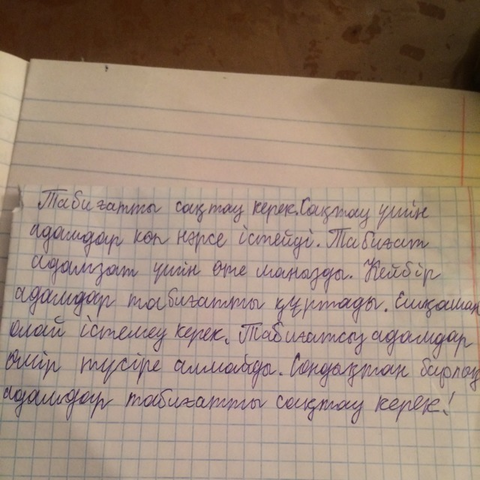 Табиғатты сақтау керек. Сақтау үшін
адамдар көп нәрсе істейді. Табиғат
адамзат үшін өте маңызды. Кейбір
адамдар табиғатты құртады. Ешқашан
олай істемеу керек. Табиғатсыз адамдар
өмір түсіре алмайды. Сондықтан барлық
адамдар табиғатты сақтау керек!